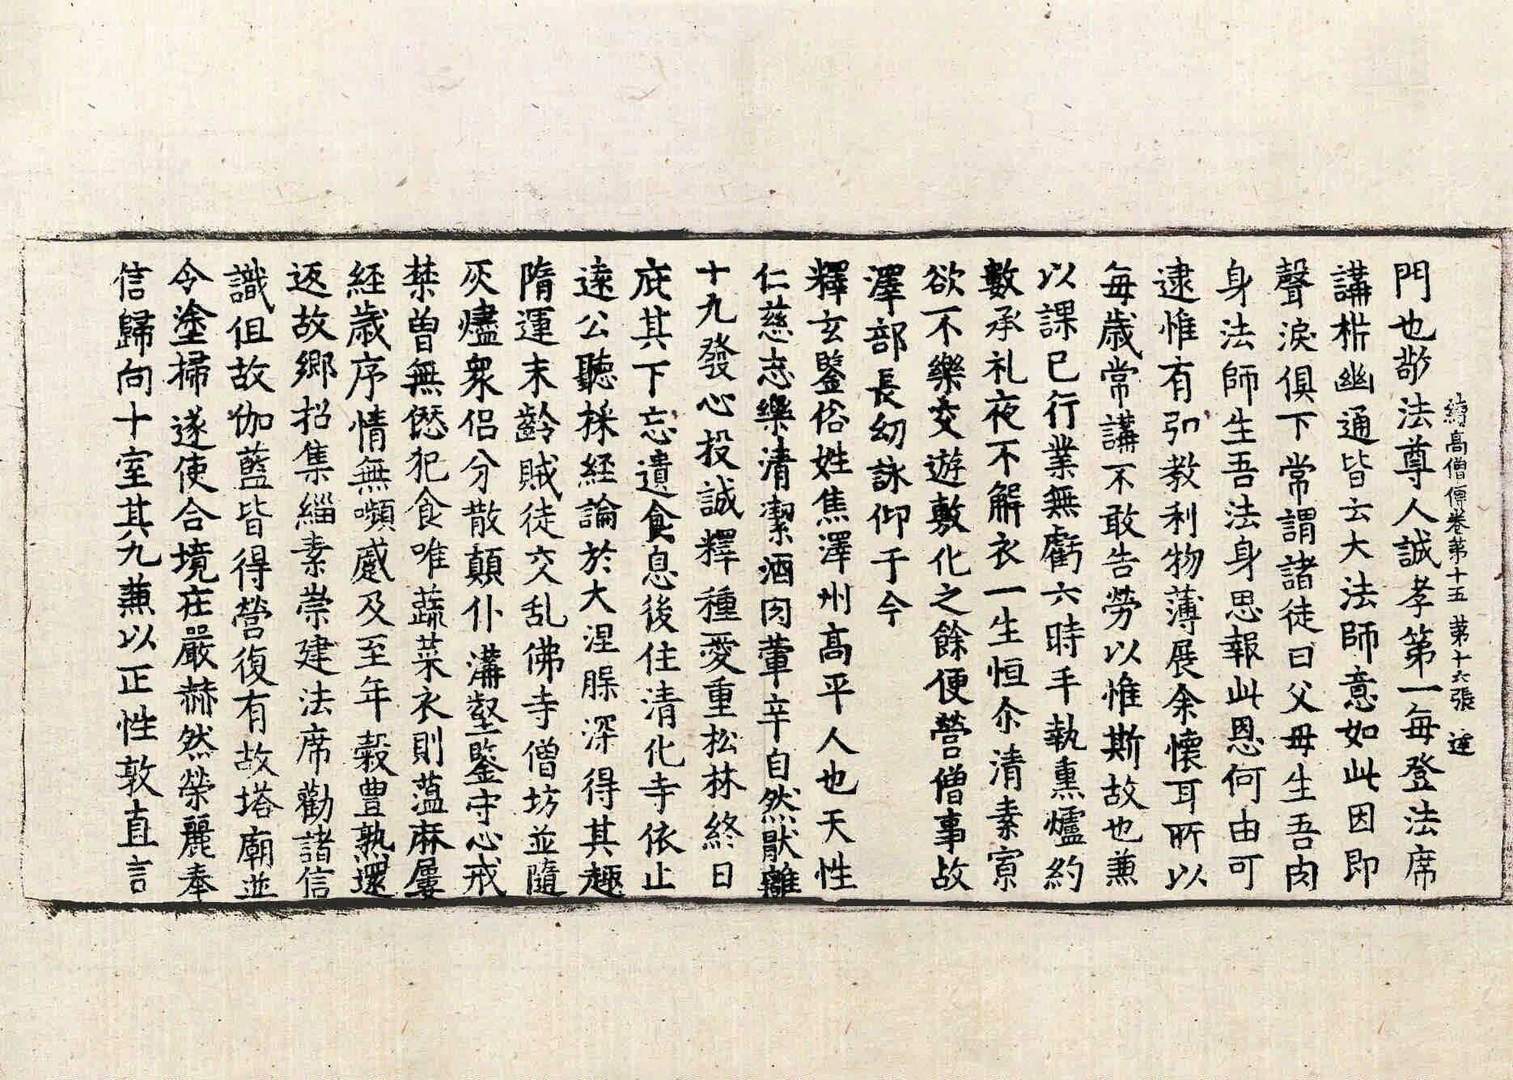 續高僧傳卷第十五 第十六張 莚
門也敬法尊人誠孝第一每登法席
講㭊幽通皆云大法師意如此因即
聲淚俱下常謂諸徒曰父母生吾肉
身法師生吾法身思報此恩何由可
逮惟有弘教利物薄展余懷耳所以
每歲常講不敢告勞以惟斯故也兼
以課已行業無虧六時手執熏爐約
數承礼夜不解衣一生恒尒清素寡
欲不樂交遊敷化之餘便營僧事故
澤部長幼詠仰于今
釋玄鑒俗姓焦澤州高平人也天性
仁慈志樂清潔酒肉葷辛自然猒離
十九發心投誠釋種愛重松林終日
庇其下忘遺食息後住清化寺依止
遠公聽採經論於大涅槃深得其趣
隋運末齡賊徒交乱佛寺僧坊並隨
灰燼衆侣分散顛仆溝壑鑒守心戒
禁曾無僁犯食唯蔬菜衣則薀麻屢
經歲序情無嚬慼及至年穀豊熟還
返故鄉招集緇素崇建法席勸諸信
識但故伽藍皆得營復有故塔廟並
令塗掃遂使合境莊嚴赫然榮麗奉
信歸向十室其九兼以正性敦直言